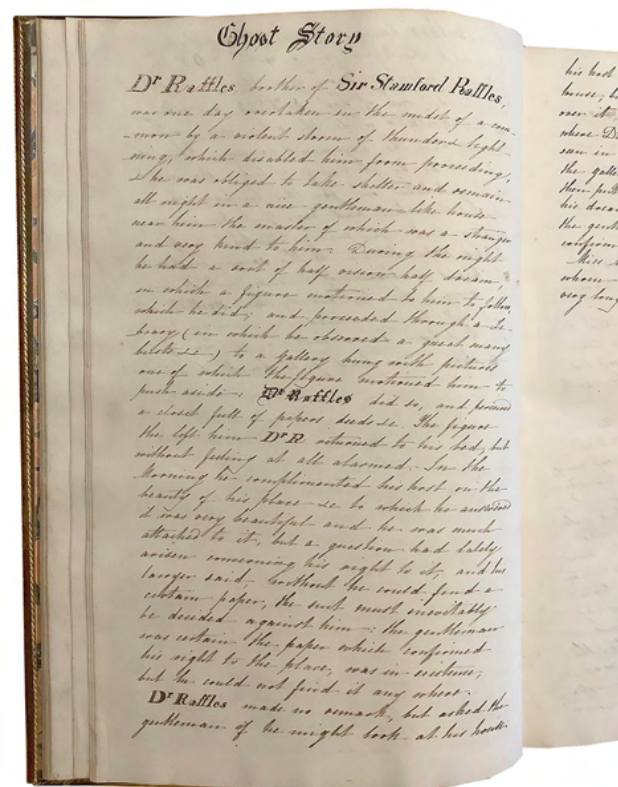 Ghost Story
Dr Raffles, brother of Sir Stamford Raffles,
was one day overtaken in the midst of a com-
-mon by a violent storm of thunder & light-
-ning, which disabled him from proceeding,
& he was obliged to take shelter and remain
all night in a nice gentleman-like house
near him the master of which was a stranger
and very kind to him. During the night
he had a sort of half vision half dream,
in which a figure motioned to him to follow,
which he did; and proceeded through a Li-
brary (in which he observed a great many
busts &c) to a Gallery hung with pictures
one of which the figure motioned him to
push aside: Dr Raffles did so, and perceived
a closet full of papers deeds &c. The figure
the left him Dr R returned to his bed, but
without feeling at all alarmed. In the
Morning he complimented his host on the
beauty of his place &c to which he answered
it was very beautiful and he was much
attached to it, but a question had lately
arisen concerning his right to it, and his
lawyer said, without he could find a
certain paper, the suit must inevitably
be decided against him: the gentleman
was certain the paper which confirmed
his right to the place, was in existence,
but he could not find it any where.
Dr Raffles made no remark, but asked the
gentleman if he might look at his house.
his host
house,
over it,
where D
seen in
the gall
then pu
his drea
the gent
confirm
Miss
whom
very long